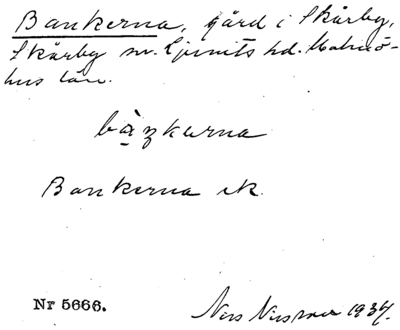 Bankerna, gård i Skårby,
Skårby sn. Ljunits hd. Malmö-
hus län.
Bankerna ek.
Nr 5666.
Nils 1937.